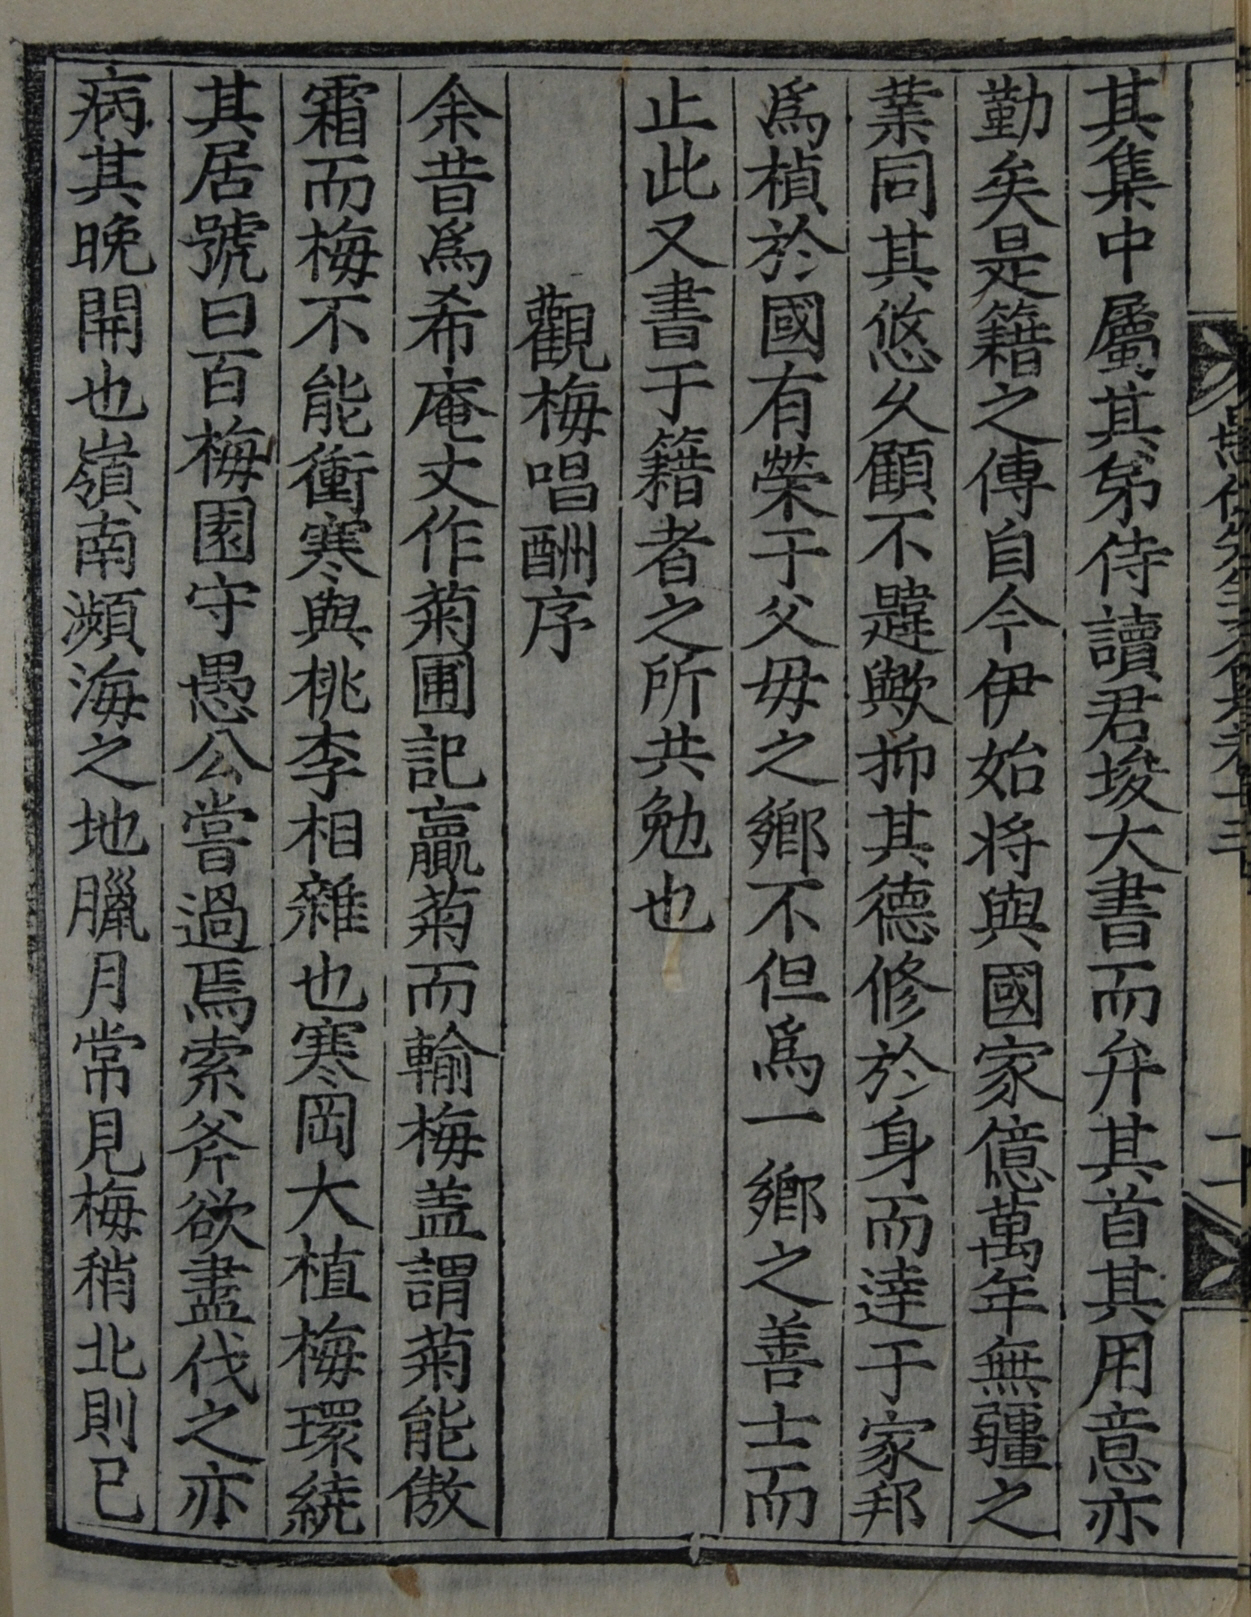 其集中屬其弟侍讀君埈大書而弁其首其用意亦
勤矣是籍之傳自今伊始將與國家億萬年無疆之
業同其悠久顧不韙歟抑其德修於身而達于家邦
爲楨於國有榮于父母之鄉不但爲一鄉之善士而
止此又書于籍者之所共勉也
觀梅唱酬序
余昔爲希庵丈作菊圃記贏菊而輸梅盖謂菊能傲
霜而梅不能衝寒與桃李相雜也寒岡大植梅環繞
其居號曰百梅園守愚公嘗過焉索斧欲盡伐之亦
病其晚開也嶺南瀕海之地臘月常見梅稍北則已